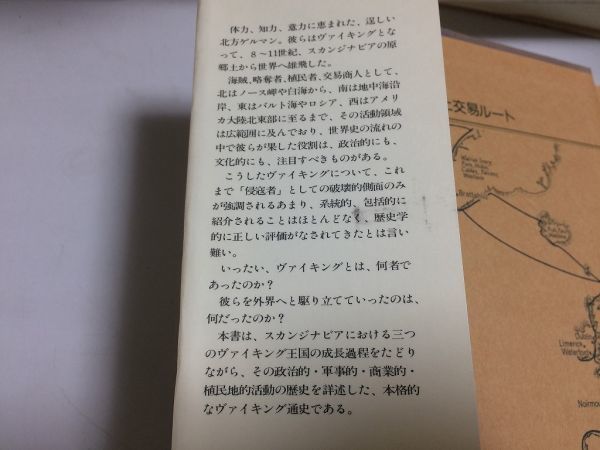 体力、知力、意力に恵まれた、逞しい
北方ゲルマン。彼らはヴァイキングとな
って、８～11世紀、スカンジナビアの原
郷土から世界へ雄飛した。
海賊、略奪者、植民者、交易商人として、
北はノース岬や白海から、南は地中海沿
岸、東はバルト海やロシア、西はアメリ
カ大陸北東部に至るまで、その活動領域
は広範囲に及んでおり、世界史の流れの
中で彼らが果した役割は、政治的にも、
文化的にも、注目すべきものがある。
こうしたヴァイキングについて、これ
まで「侵寇者」としての破壊的側面のみ
が強調されるあまり、系統的、包括的に
紹介されることはほとんどなく、歴史学
的に正しい評価がなされてきたとは言い
難い。
いったい、ヴァイキングとは、何者で
あったのか？
彼らを外界へと駆り立てていったのは、
何だったのか？
本書は、スカンジナビアにおける三つ
のヴァイキング王国の成長過程をたどり
ながら、その政治的・軍事的・商業的・
植民地的活動の歴史を詳述した、本格的
なヴァイキング通史である。
交易ルート
Brattah
Dublin
Limerick
Waterford
Noirmou